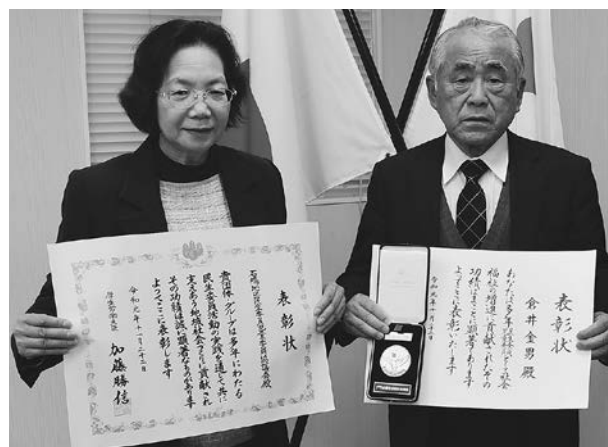 表彰状
民生委員児童委員協議会殿
貴団体・グループは多年にわたる
民生委員活動の実践を通して共に
支えあう地域社会づくりに貢献され
その功績は誠に顕著なものがあります
よってここに表彰します
令和元年十一月二十二日
厚生労働大臣 加藤勝信
表彰状
倉井金男殿
あなたは多年
社会
福祉の増進に貢献されたその
功績はまことに顕著であります
よってここに表彰いたします
令和元年十一月